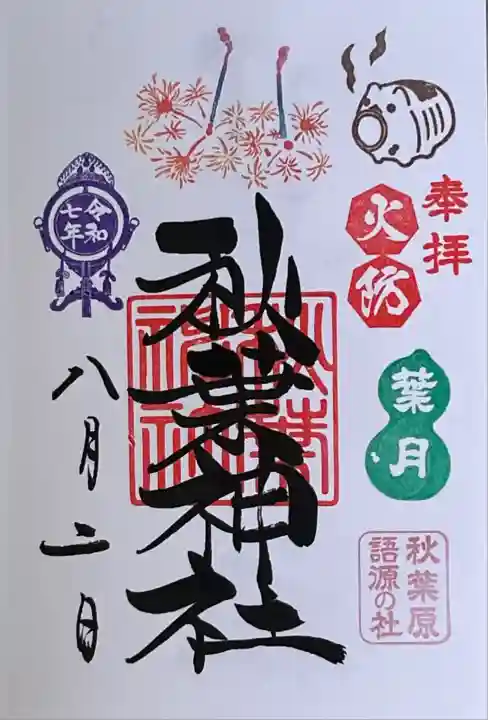 奉拝
火防
葉月
秋葉原
語源の社
秋葉神社
秋葉
神社
令和
七年
八月二日